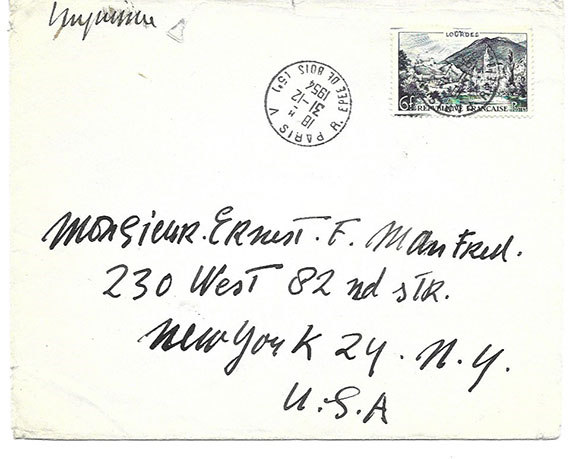 Imprimé
LOURDES
6F
RÉPUBLIQUE FRANÇAISE
Postes
PARIS V R. EPEE DE BOIS (5e)
18 H
31-12
1954
Monsieur. Ernest. F. Manfred.
230 West 82 nd str.
New York 24. N. Y.
U. S. A